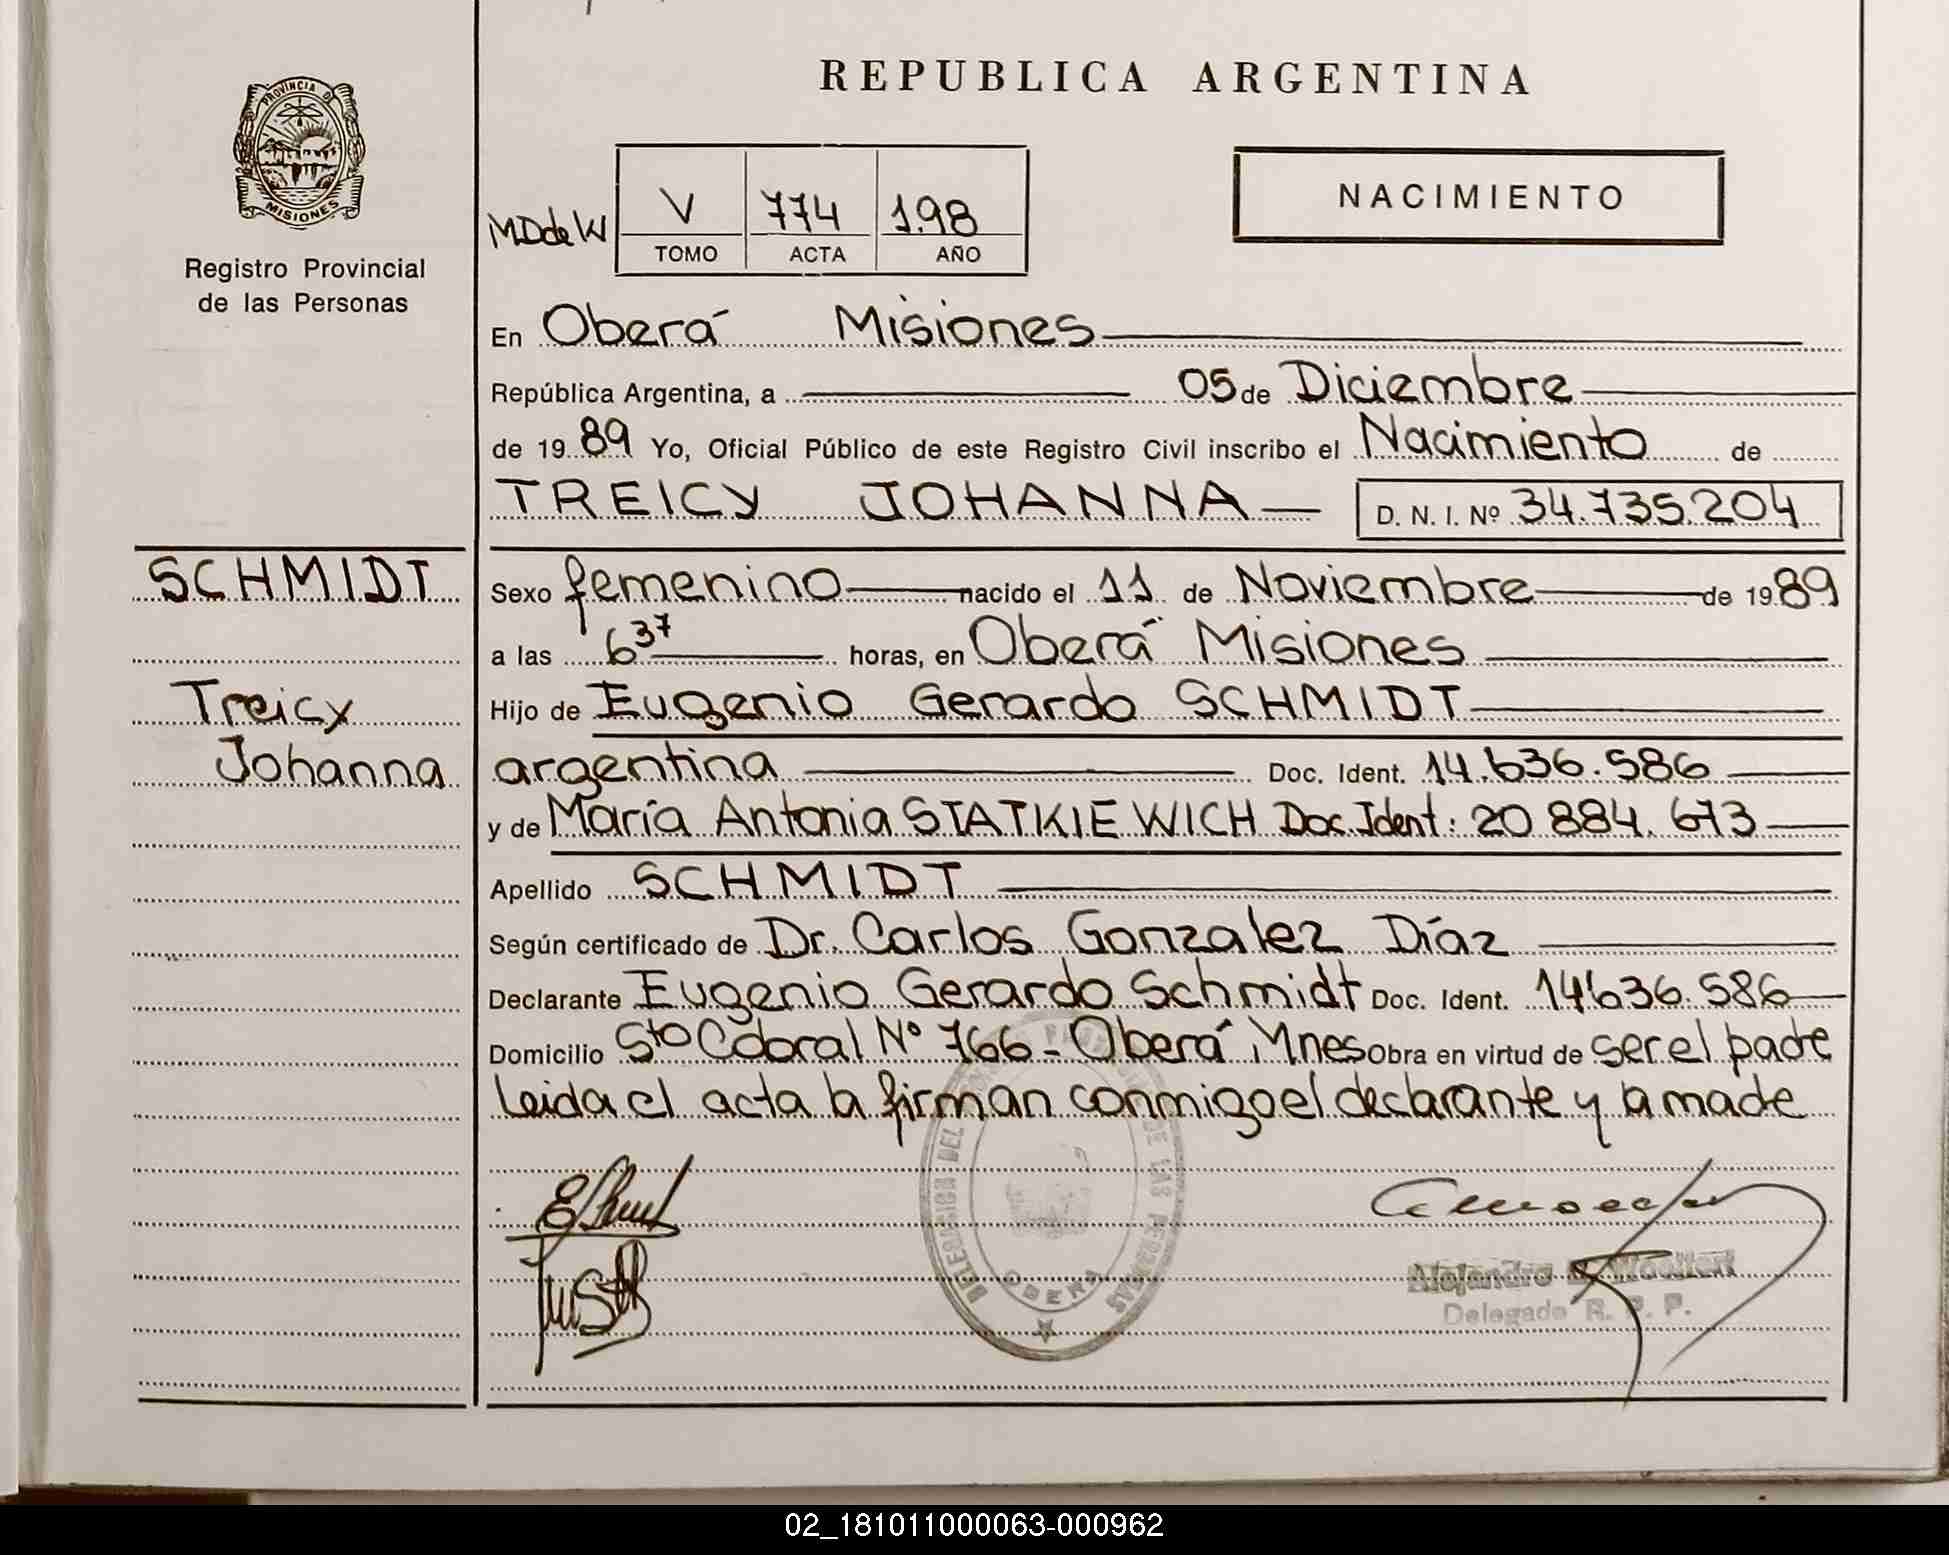 REPUBLICA ARGENTINA
PROVINCIA DE
MISIONES
Registro Provincial
de las Personas
NACIMIENTO
MDdeW V 774 198
TOMO ACTA AÑO
En Oberá Misiones
República Argentina, a 05 de Diciembre
de 1989 Yo, Oficial Público de este Registro Civil inscribo el Nacimiento de
TREICY JOHANNA D. N. I. Nº 34.735.204
SCHMIDT
Treicy
Johanna
Sexo femenino nacido el 11 de Noviembre de 1989
a las 6 37 horas, en Oberá Misiones
Hijo de Eugenio Gerardo SCHMIDT
argentina Doc. Ident. 14.636.586
y de María Antonia STATKIEWICH Doc. Ident: 20 884.673
Apellido SCHMIDT
Según certificado de Dr. Carlos Gonzalez Díaz
Declarante Eugenio Gerardo Schmidt Doc. Ident. 14636.586
Domicilio Sto Cabral Nº 766 - Oberá Mnes Obra en virtud de ser el padre
leida el acta la firman conmigo el declarante y la madre
DELEGACION DEL DE LAS PERSONAS
OBERA
Alejandro
Delegado R. P. P.
02_181011000063-000962